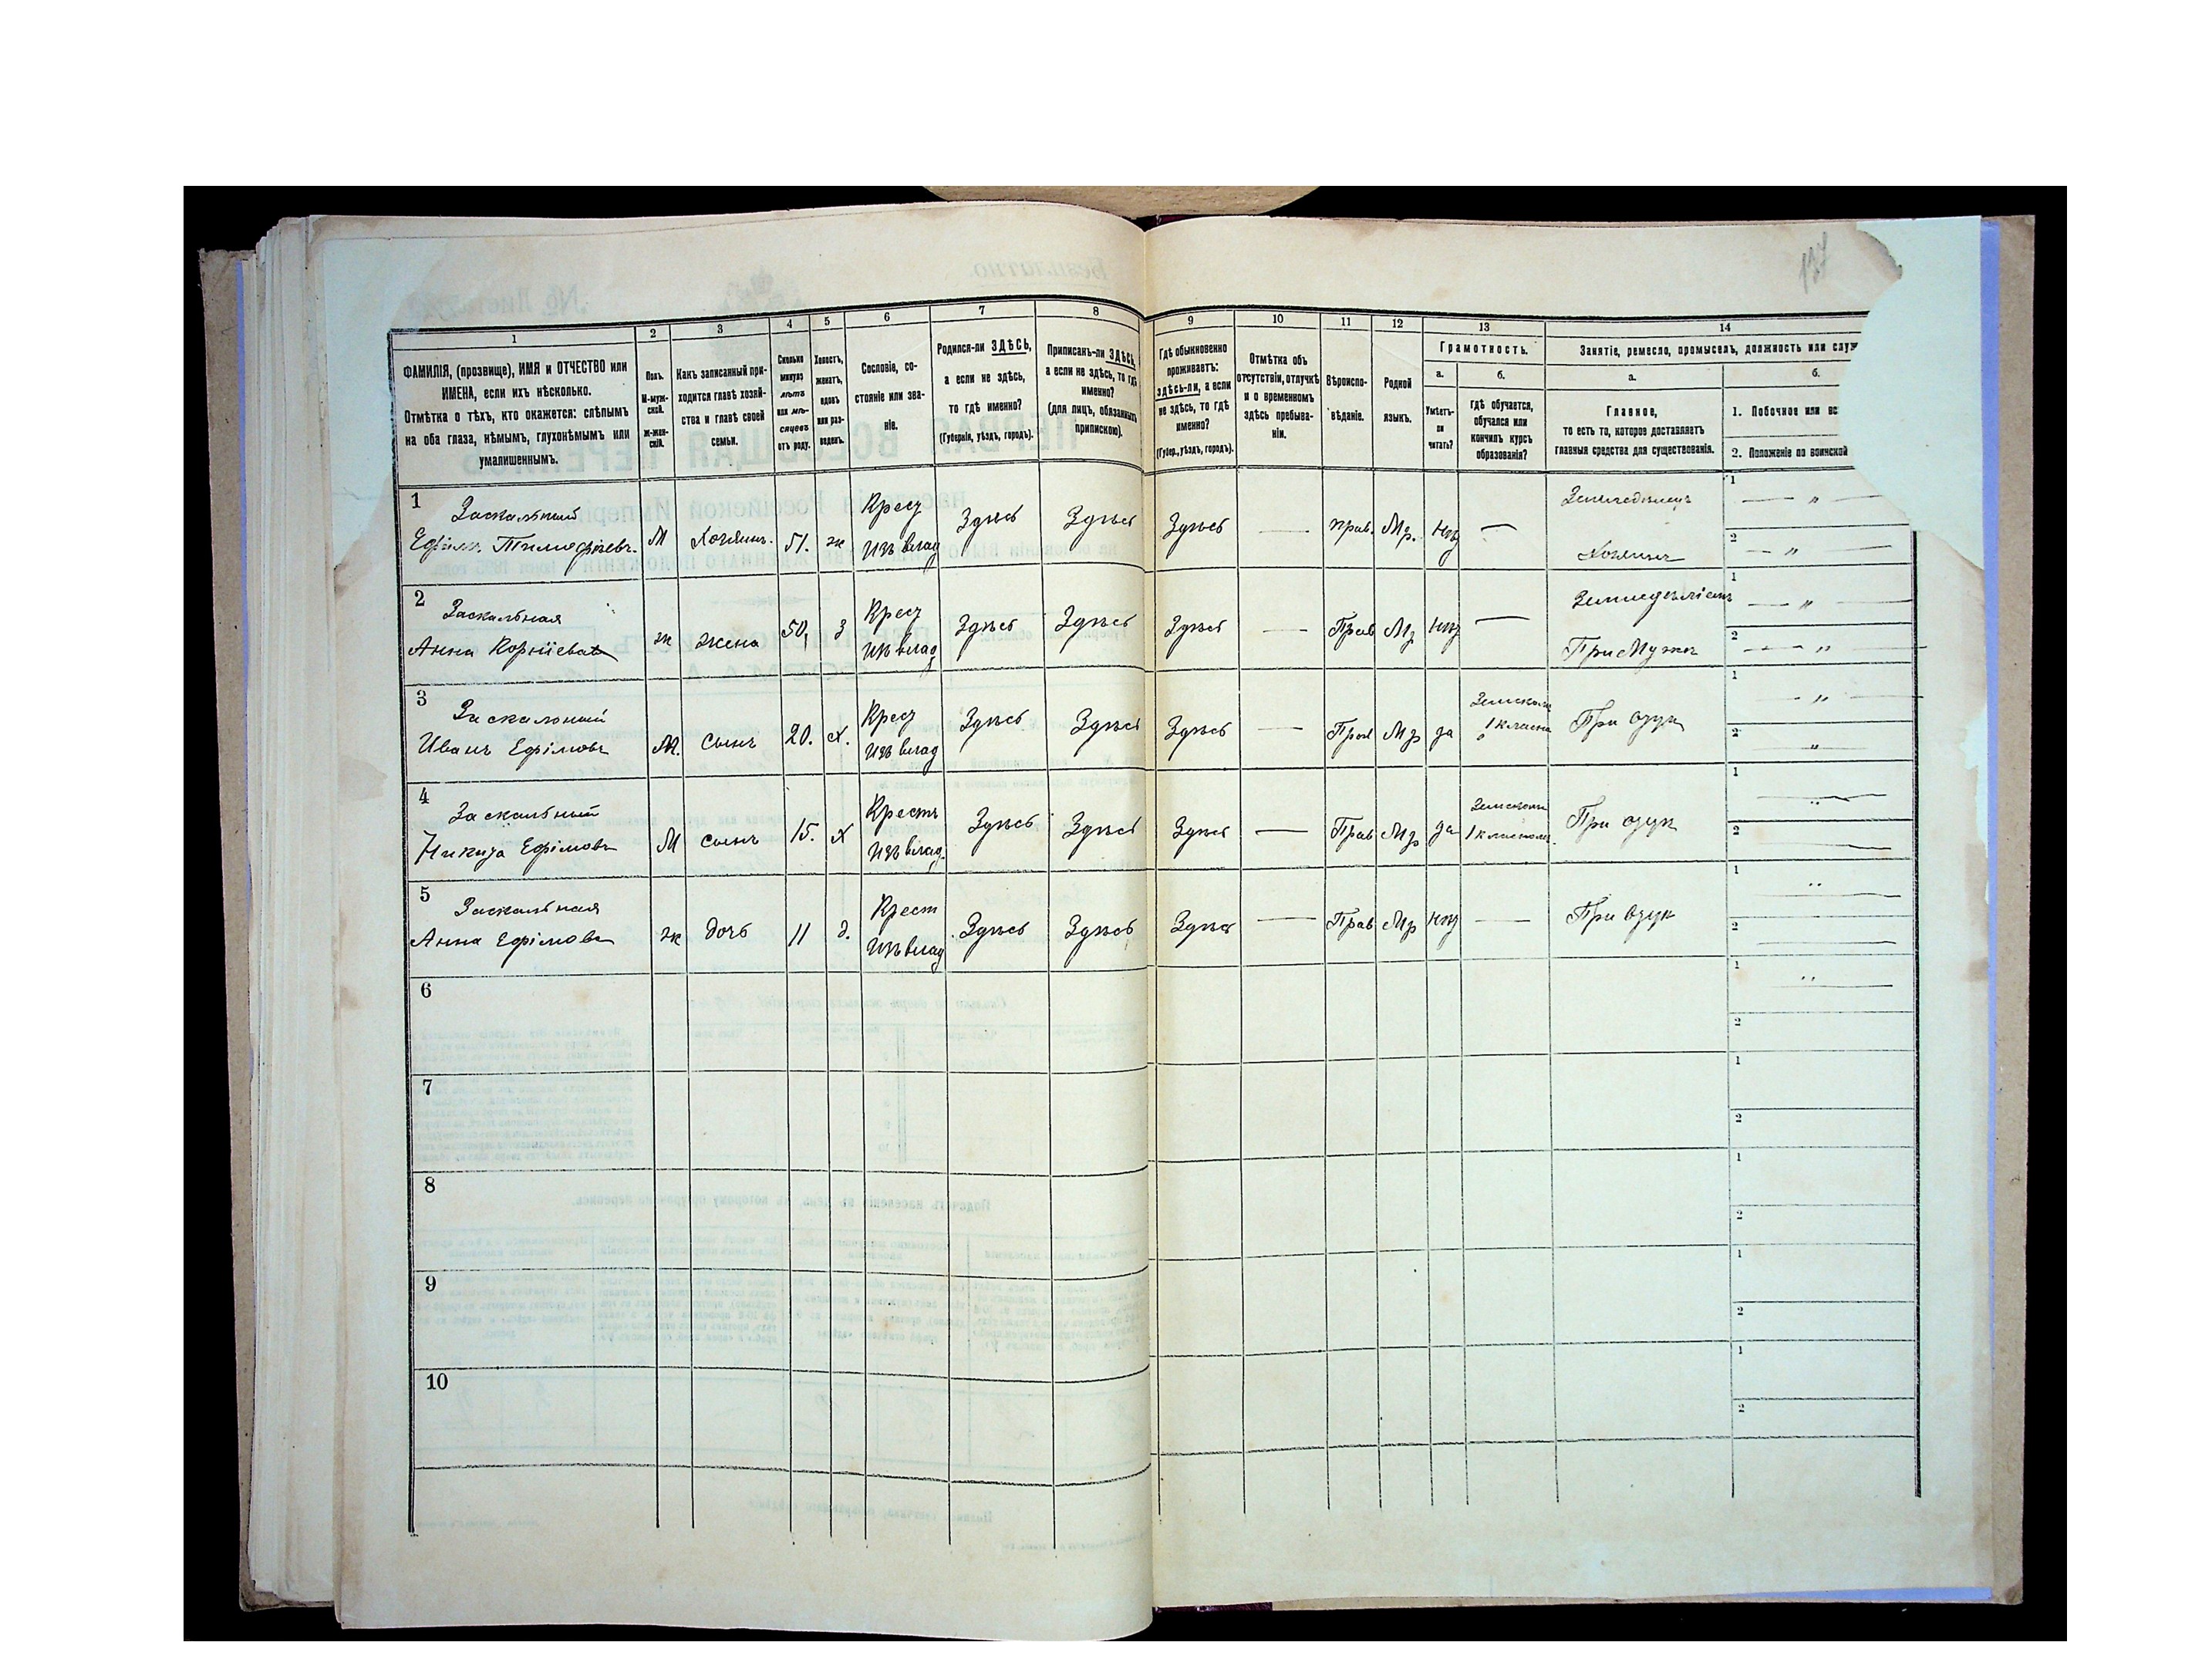 137
1
2
3
4
5
6
7
8
9
10
11
12
13
14
ФАМИЛІЯ, (прозвище), ИМЯ и ОТЧЕСТВО или
ИМЕНА, если ихъ нѣсколько.
Отмѣтка о тѣхъ, кто окажется: слѣпымъ
на оба глаза, нѣмымъ, глухонѣмымъ или
умалишеннымъ.
Полъ.
М-муж-
ской.
Ж-жен-
скій.
Какъ записанный при-
ходится главѣ хозяй-
ства и главѣ своей
семьи.
Сколько
минуло
лѣтъ
или мѣ-
сяцевъ
отъ роду.
Холостъ,
женатъ,
вдовъ
или раз-
веденъ.
Сословіе, со-
стояніе или зва-
ніе.
Родился-ли ЗДѢСЬ,
а если не здѣсь,
то гдѣ именно?
(Губернія, уѣздъ, городъ).
Приписанъ-ли ЗДѢСЬ,
а если не здѣсь, то гдѣ
именно?
(для лицъ, обязанныхъ
припискою).
Гдѣ обыкновенно
проживаетъ:
здѣсь-ли, а если
не здѣсь, то гдѣ
именно?
(Губер., уѣздъ, городъ).
Отмѣтка объ
отсутствіи, отлучкѣ
и о временномъ
здѣсь пребыва-
ніи.
Вѣроиспо-
вѣданіе.
Родной
языкъ.
Грамотность.
а.
Умѣетъ-
ли
читать?
б.
Гдѣ обучается,
обучался или
кончилъ курсъ
образованія?
Занятіе, ремесло, промыселъ, должность или служ
а.
Главное,
то есть то, которое доставляетъ
главныя средства для существованія.
б.
1. Побочное или вс
2. Положеніе по воинской
1
Заскальный
Ефимъ Тимофѣевъ.
М
Хозяинъ.
51.
ж
Крест
Изъ влад
Здѣсь
Здѣсь
Здѣсь
—
прав.
Мр.
нѣт
—
Земледѣлецъ
Хозяинъ
1 — „ —
2 — „ —
2
Заскальная
Анна Корніева
ж
жена
50,
З
Крест
Изъ влад
Здѣсь
Здѣсь
Здѣсь
—
Прав
Мр
нѣт
—
При Мужѣ
1 — „ —
2 — „ —
3
Заскальный
Иванъ Ефімовъ
М.
сынъ
20.
х.
Крест
Изъ влад
Здѣсь
Здѣсь
Здѣсь
—
Прав
Мр
да
При отцѣ
1 — „ —
2 „
4
Заскальный
Никита Ефімовъ
М
сынъ
15.
х
Крестъ
Изъ влад.
Здѣсь
Здѣсь
Здѣсь
—
Прав
Мр
да
При отцѣ
1 „
2 —
5
Заскальная
Анна Ефімова
ж
дочь
11
д.
Крест
Изъ влад
Здѣсь
Здѣсь
Здѣсь
—
Прав
Мр
нѣт
—
При отцѣ
1 „
2 —
6
1 „
2
7
1
2
8
1
2
9
1
2
10
1
2